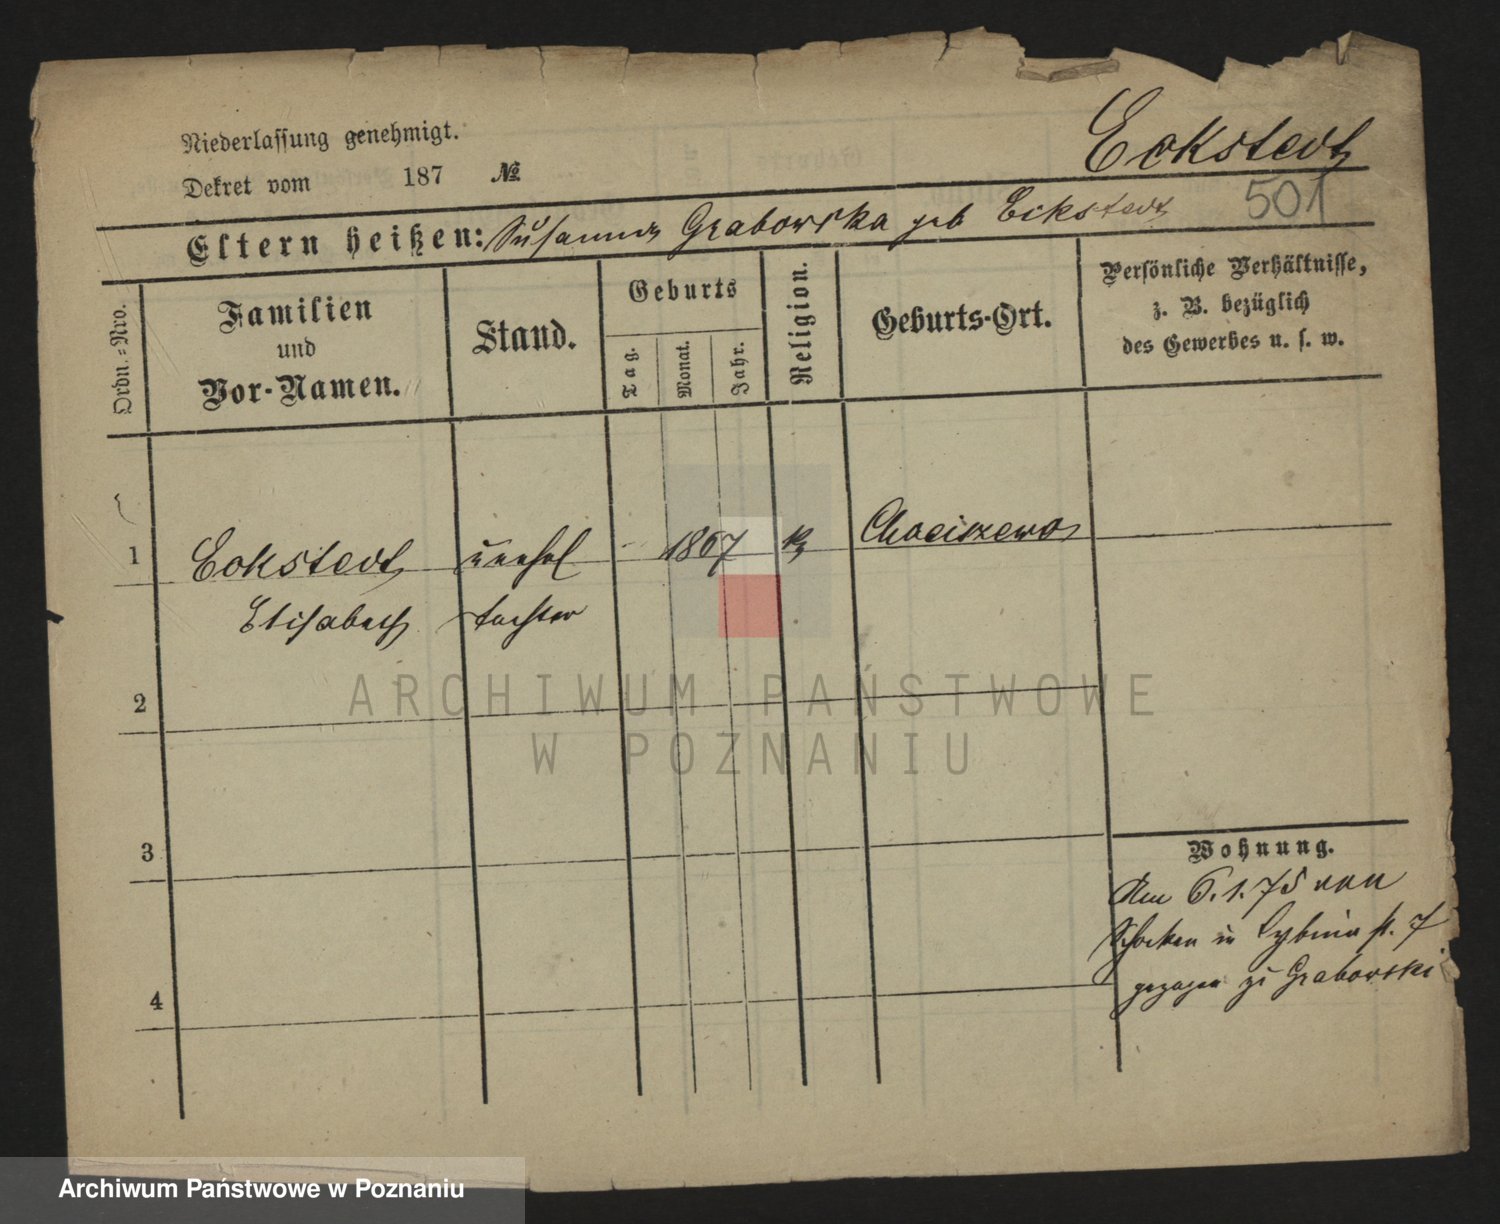 Eckstedt
Niederlassung genehmigt.
Dekret vom 187 №
501
Eltern heißen: Susanna Grabowska geb Eckstedt
Ordn.=Nro.
Familien
und
Vor-Namen.
Stand.
Geburts
Tag.
Monat.
Jahr.
Religion.
Geburts-Ort.
Persönliche Verhältnisse,
z. B. bezüglich
des Gewerbes u. s. w.
1 Eckstedt unehel 1867 k Chociszewo
Elisabeth tochter
2
3
4
Wohnung.
Am 6.1.75 von
Schocken in Rybaki st. 7
gezogen zu Grabowski
ARCHIWUM PAŃSTWOWE
W POZNANIU
Archiwum Państwowe w Poznaniu